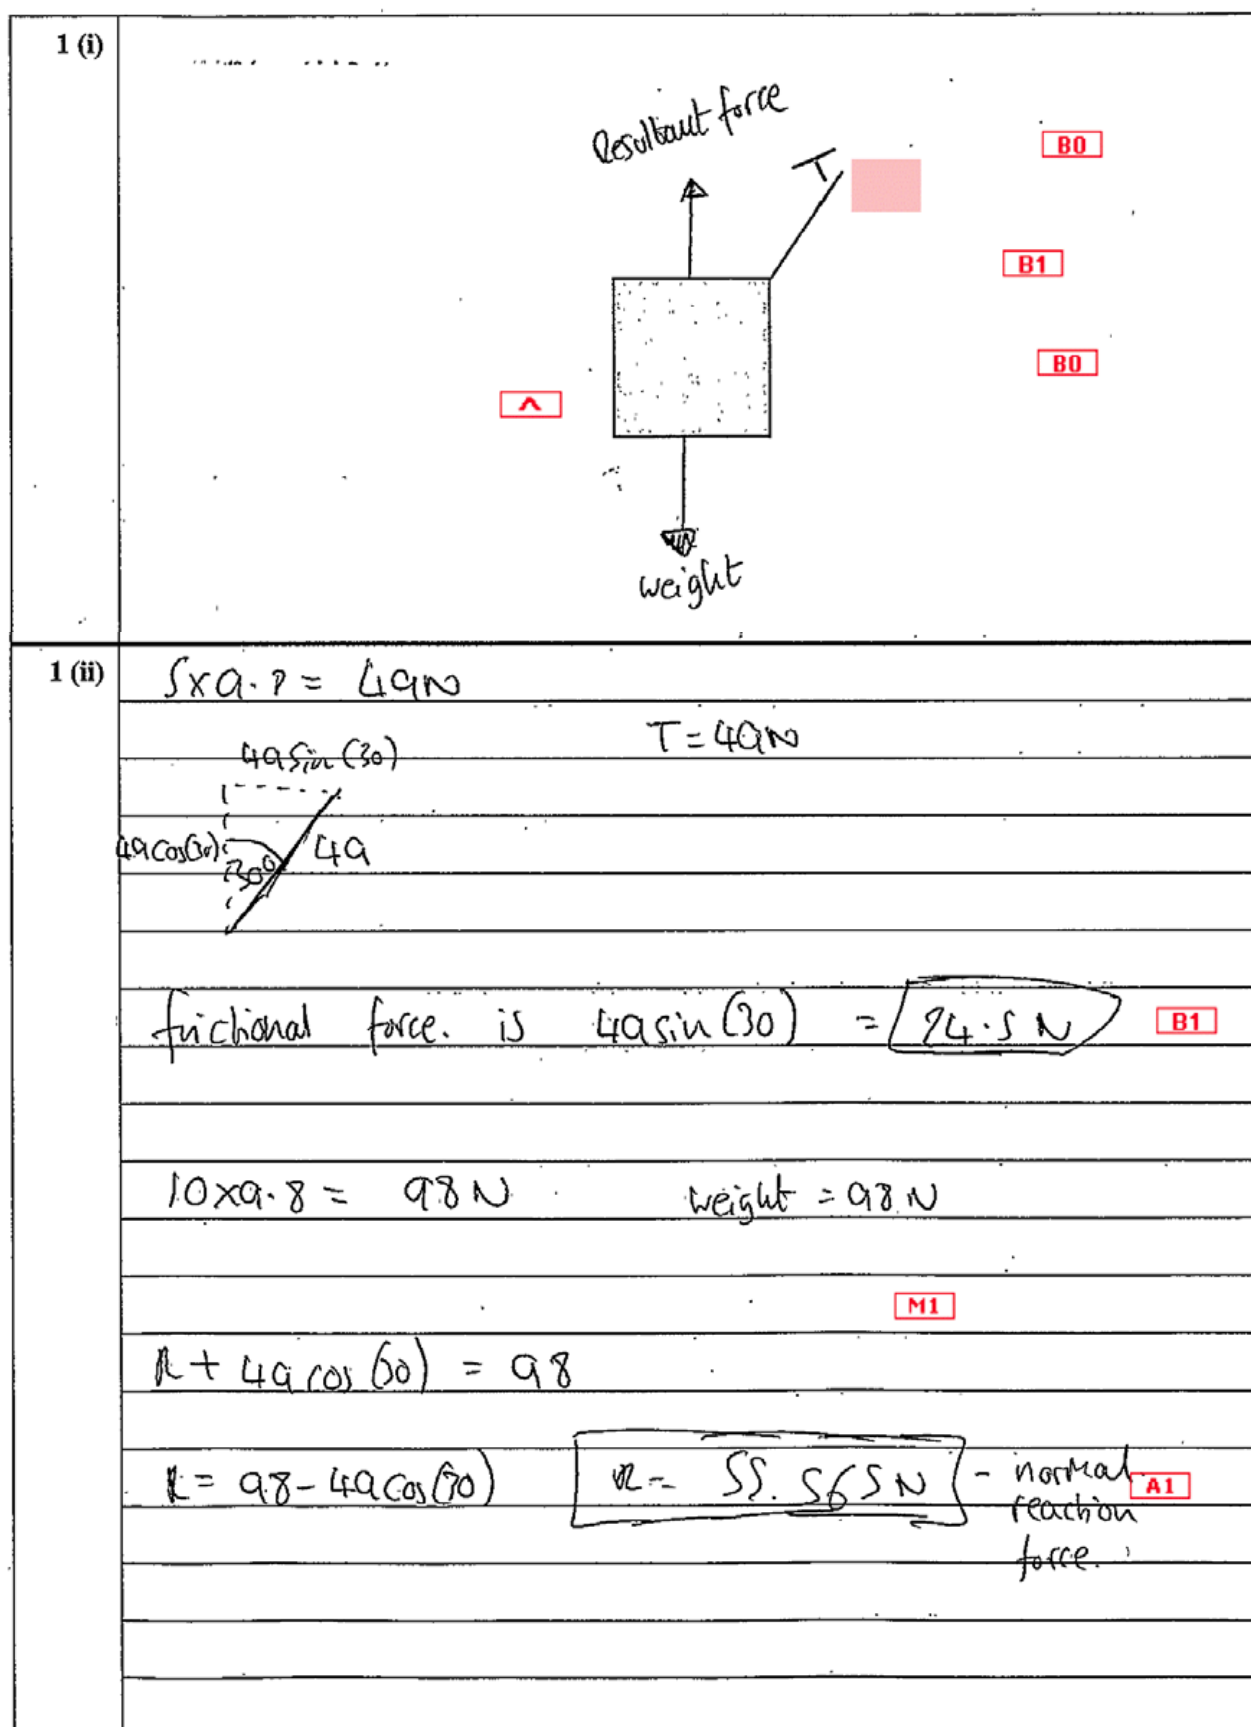 1 (i)
Resultant force
T
B0
B1
B0
^
weight
1 (ii)
5x9.8 = 49N
T = 49N
49sin(30)
49cos(30)
30°
49
frictional force. is 49sin(30) = 24.5 N
B1
10x9.8 = 98N weight = 98N
M1
R + 49cos(30) = 98
R = 98-49cos(30) R = 55.565N - normal
A1
reaction
force.